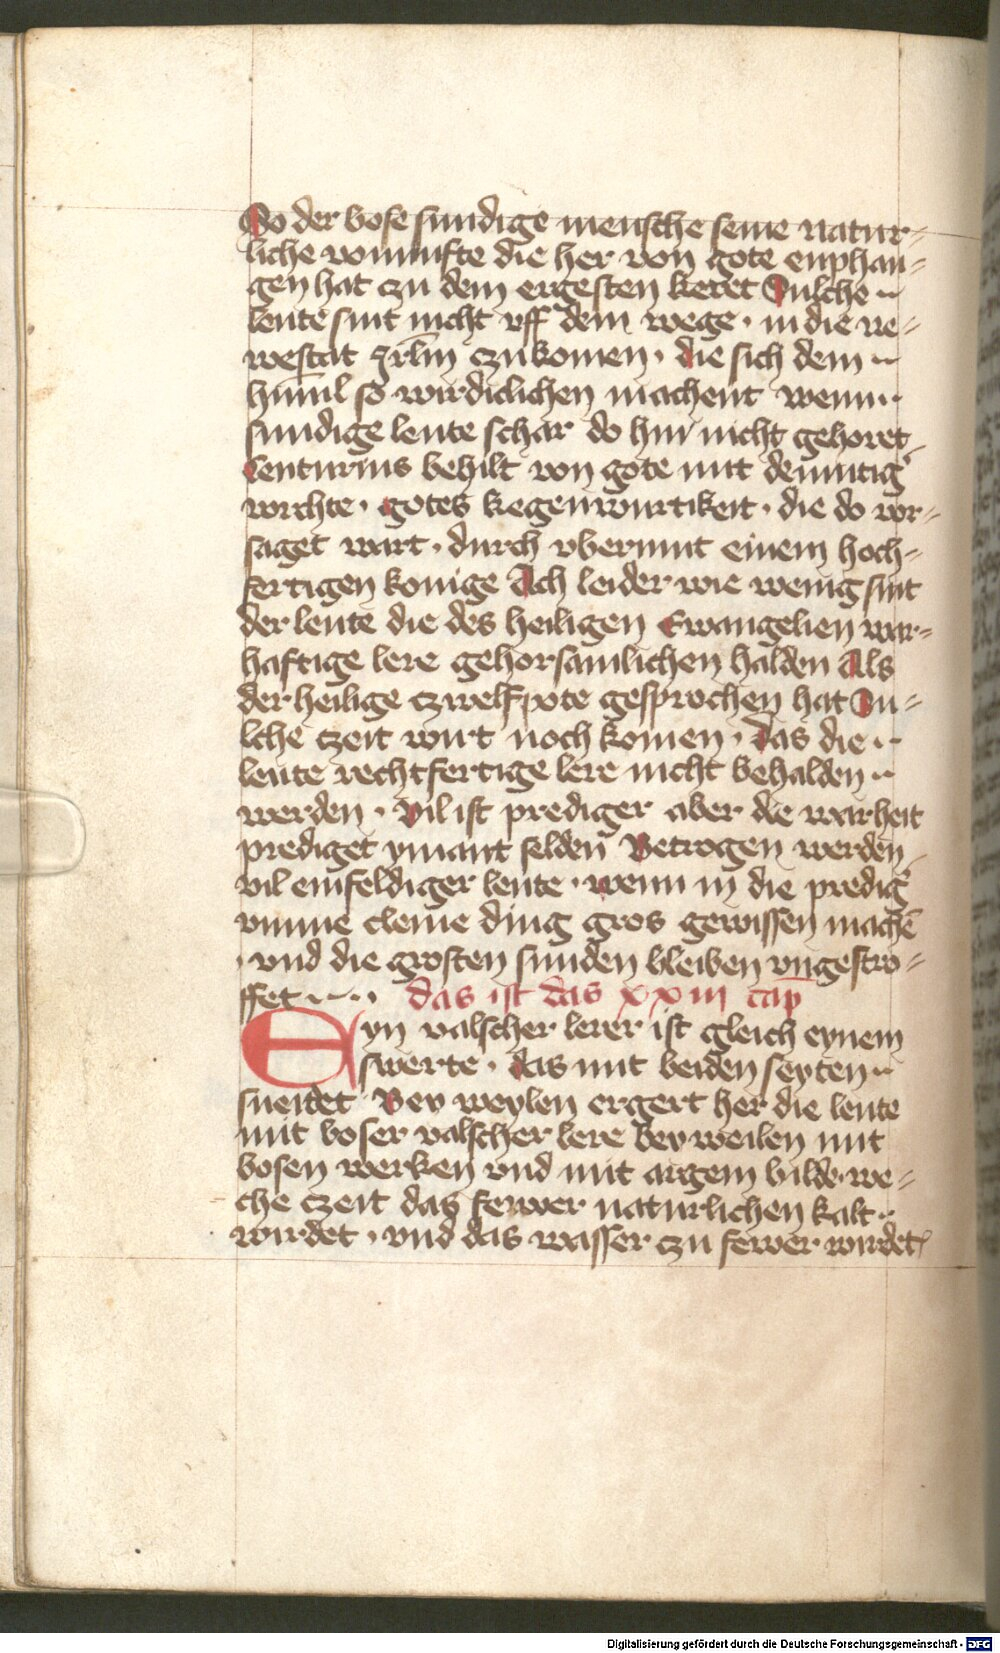 So der bose sundige mensche seine natur⸗
liche vornunfte die her von gote enphan⸗
gen hat czu dem ergesten keret Sulche
leute sint nicht vff dem wege · in die ne⸗
westat Jrl̄m czukomen · die sich dem
himil so wirdiclichen machent wenn
sundige leute schar do hin nicht gehoret
Centurius behilt von gote mit demutig̉
vorchte · gotes kegenwurtikeit · die do vor⸗
saget wart · durch vbermut einem hoch⸗
fertigen konige Ach leider wie wenig sint
der leute die des heiligen Ewangelien war⸗
haftige lere gehorsamlichen halden Als
der heilige czwelfpote gesprochen hat Su⸗
lche czeit wirt noch komen · das die
leute rechtfertige lere nicht behalden
werden · Vil ist prediger aber die warheit
prediget ymant selden Betrogen werden
vil einfeldiger leute · wenn in die predig̉
vmme cleine ding gros gewissen mach̄e
· vnd die grosten sunden bleiben vngestro⸗
ffet das ist das xxiii cap̄
Eyn valscher lerer ist gleich eynem
swerte · das mit beiden seyten
sneidet Bey weylen ergert her die leute
mit boser valscher lere Bey weilen mit
bosen werken vnd mit argem bilde · we⸗
che czeit das fewer naturlichen kalt
wirdet · vnd das wasser czu fewer wirdet
Digitalisierung gefördert durch die Deutsche Forschungsgemeinschaft - DFG